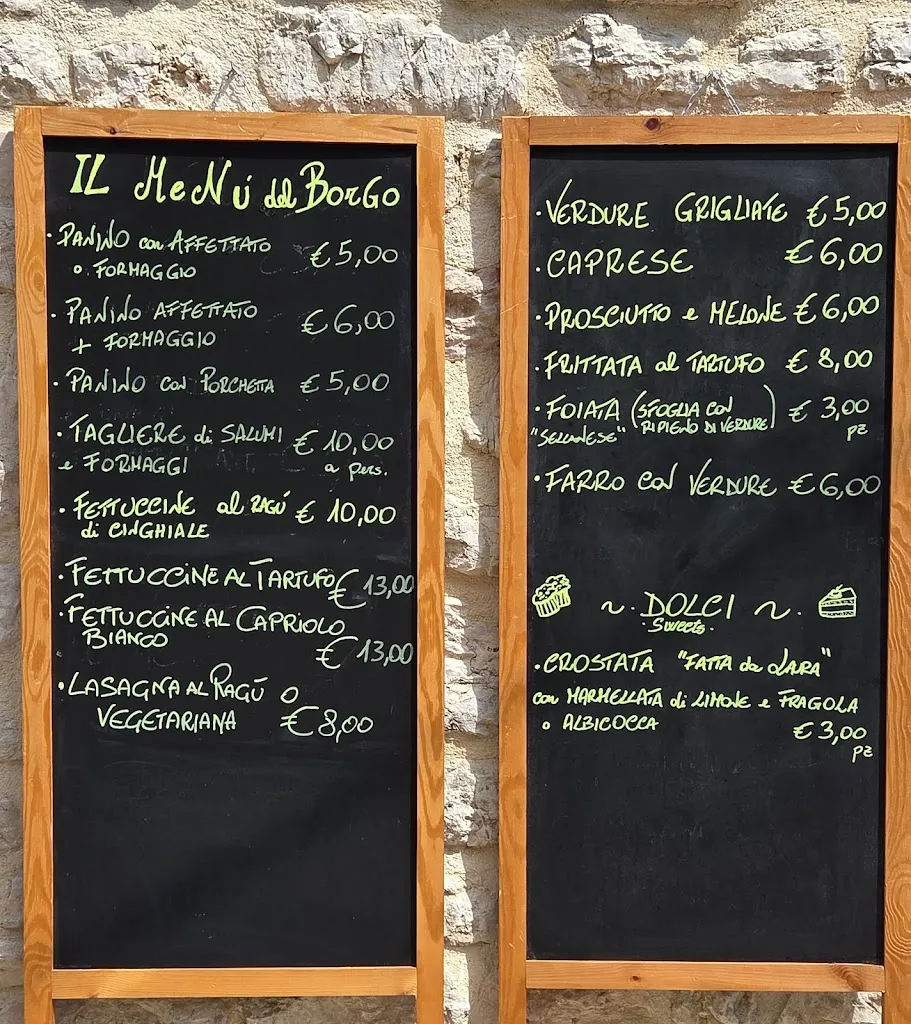 IL MeNú del BorGo
· PANINO con AFFETTATO € 5,00
o FORMAGGIO
· PANINO AFFETTATO € 6,00
+ FORMAGGIO
· PANINO con PORCHETTA € 5,00
· TAGLIERE di SALUMI € 10,00
e FORMAGGI a pers.
· FETTUCCINE al RAGÚ € 10,00
di CINGHIALE
· FETTUCCINE AL TARTUFO € 13,00
· FETTUCCINE AL CAPRIOLO
BIANCO € 13,00
· LASAGNA AL RAGÚ O
VEGETARIANA € 8,00
· VERDURE GRIGLIATE € 5,00
· CAPRESE € 6,00
· PROSCIUTTO e MELONE € 6,00
· FRITTATA al TARTUFO € 8,00
· FOIATA (SFOGLIA CON € 3,00
"SELLANESE" RIPIENO DI VERDURE) PZ
· FARRO CON VERDURE € 6,00
~ · DOLCI ~ ·
Sweets ·
· CROSTATA "FATTA da LARA"
con MARMELLATA di LIMONE e FRAGOLA
o ALBICOCCA € 3,00
PZ